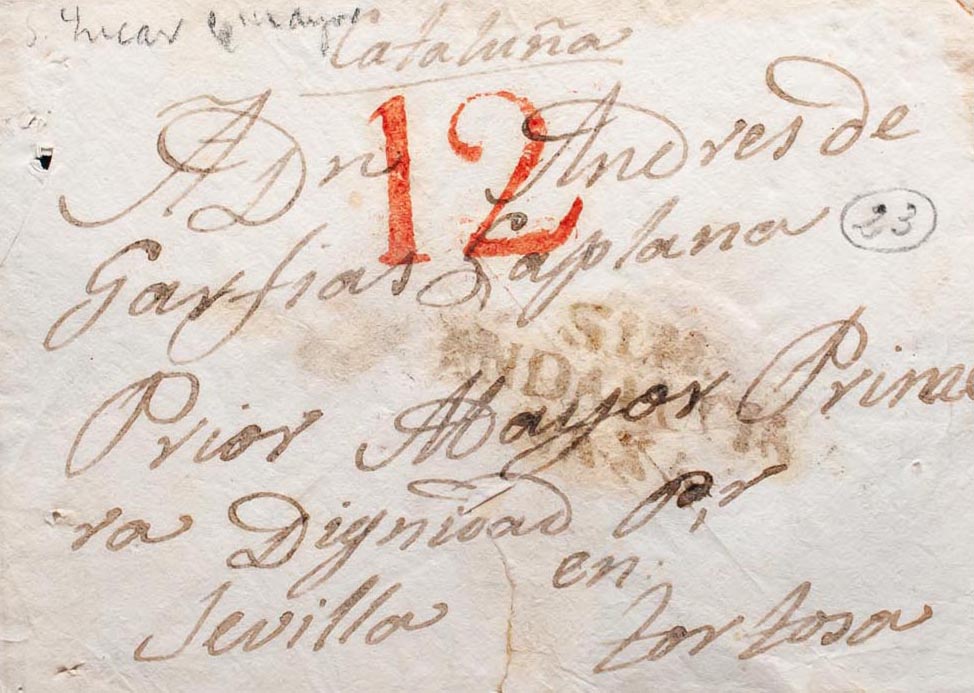 S. Lucar la mayor
Cataluña
12
A Dn Andres de
Garsias Laplana
23
Prior Mayor Prime
ra Dignidad Pr
en
Sevilla Tortosa